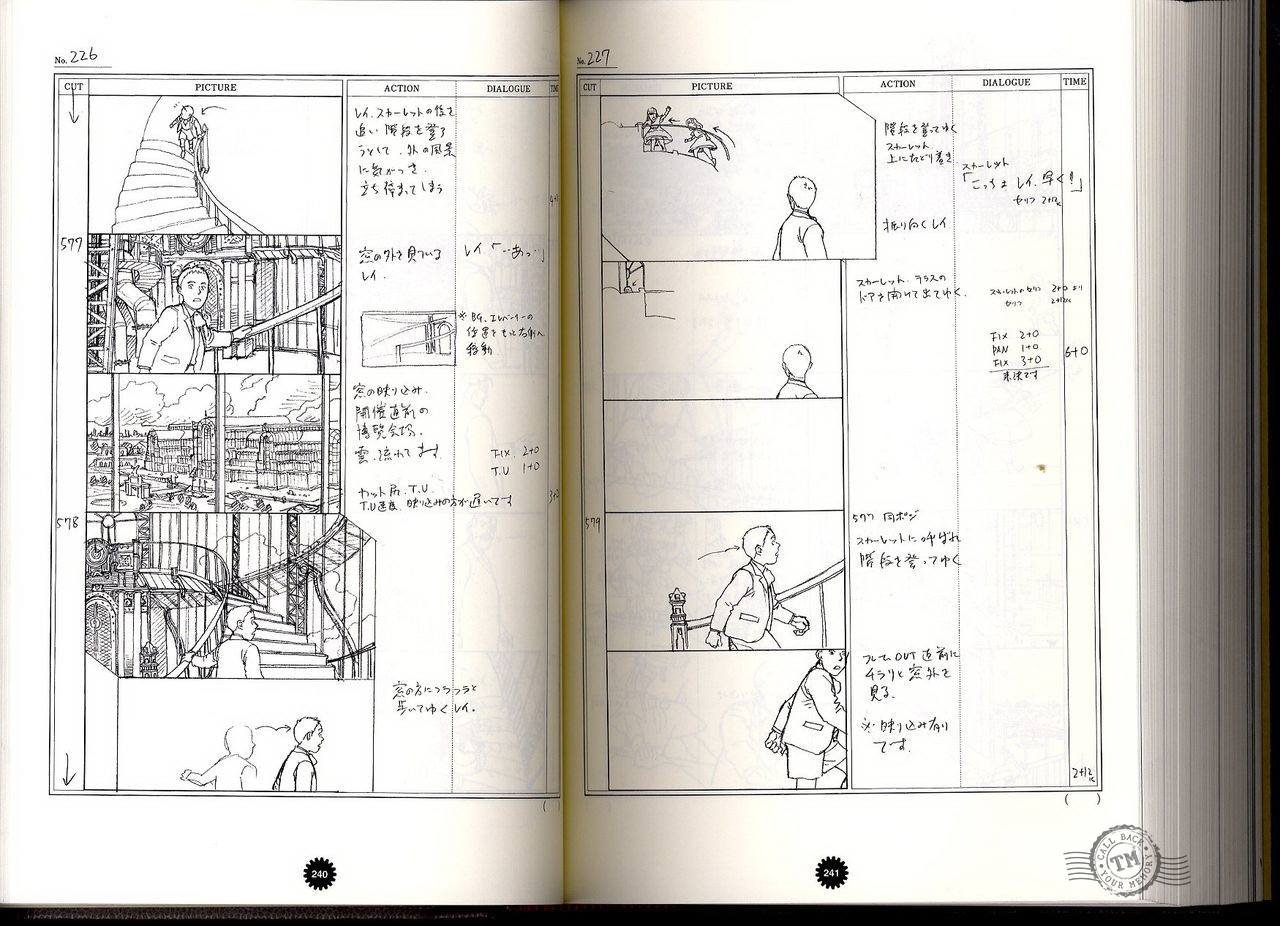 No. 226
CUT
PICTURE
ACTION
DIALOGUE
レイ、スカーレットの後を
追い 階段を登ろ
うとして、外の風景
に気がつき、
立ち停まってしまう
577
窓の外を見ている
レイ.
レイ「…あっ…」
※ BG.エレベーターの
位置をもっと右側へ
移動
窓の映り込み.
開催直前の
博覧会場.
雲.流れてます
FIX. 2+0
T.U 1+0
カット尻.T.U.
T.U速度、映り込みの方が遅いです
578
窓の方にフラフラと
歩いてゆくレイ.
240
No. 227
CUT
PICTURE
ACTION
DIALOGUE
TIME
階段を登ってゆく
スカーレット
上にたどり着き
スカーレット
「こっちよ レイ、早く!」
セリフ 2+12K
振り向くレイ
スカーレット、テラスの
ドアを開けて出てゆく.
スカーレットのセリフ 2+0 より
セリフ 2+12K
FIX 2+0
PAN 1+0
FIX 3+0
6+0
579
577 同ポジ
スカーレットに呼ばれ
階段を登ってゆく
フレームOUT 直前に
チラリと窓外を
見る.
※映り込み有り
です.
2+12K
( )
241
CALL BACK
TM
YOUR MEMORY